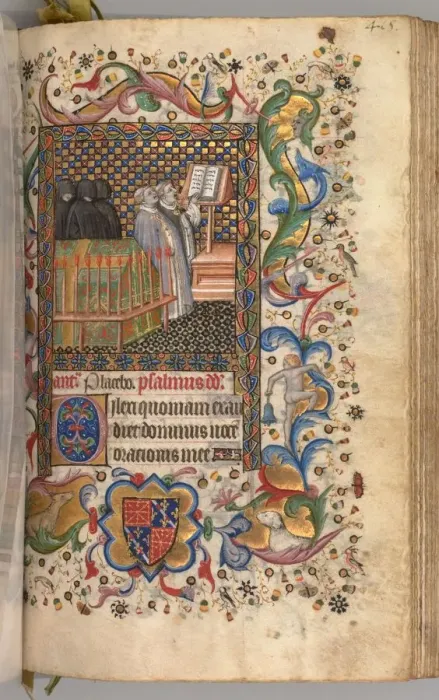 ant. Placebo. psalmus dd.
Dilexi quoniam exau
diet dominus voce
orationis mee